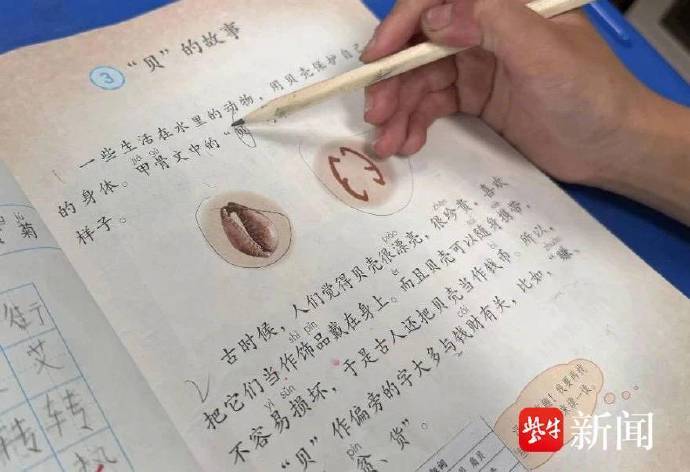 3 “贝”的故事
一些生活在水里的动物，用贝壳保护自己
jiǎ gǔ
的身体。甲骨文中的“贝
样子。
piào
古时候，人们觉得贝壳很漂亮，很珍贵，喜欢
shì pǐn
把它们当作饰品戴在身上。而且贝壳可以随身携带，
sǔn bì
不容易损坏，于是古人还把贝壳当作钱币。所以，
cái
“贝”作偏旁的字大多与钱财有关，比如，“赚、
pín
贫、货”。
菊
艾
转
转
热
紫牛新闻